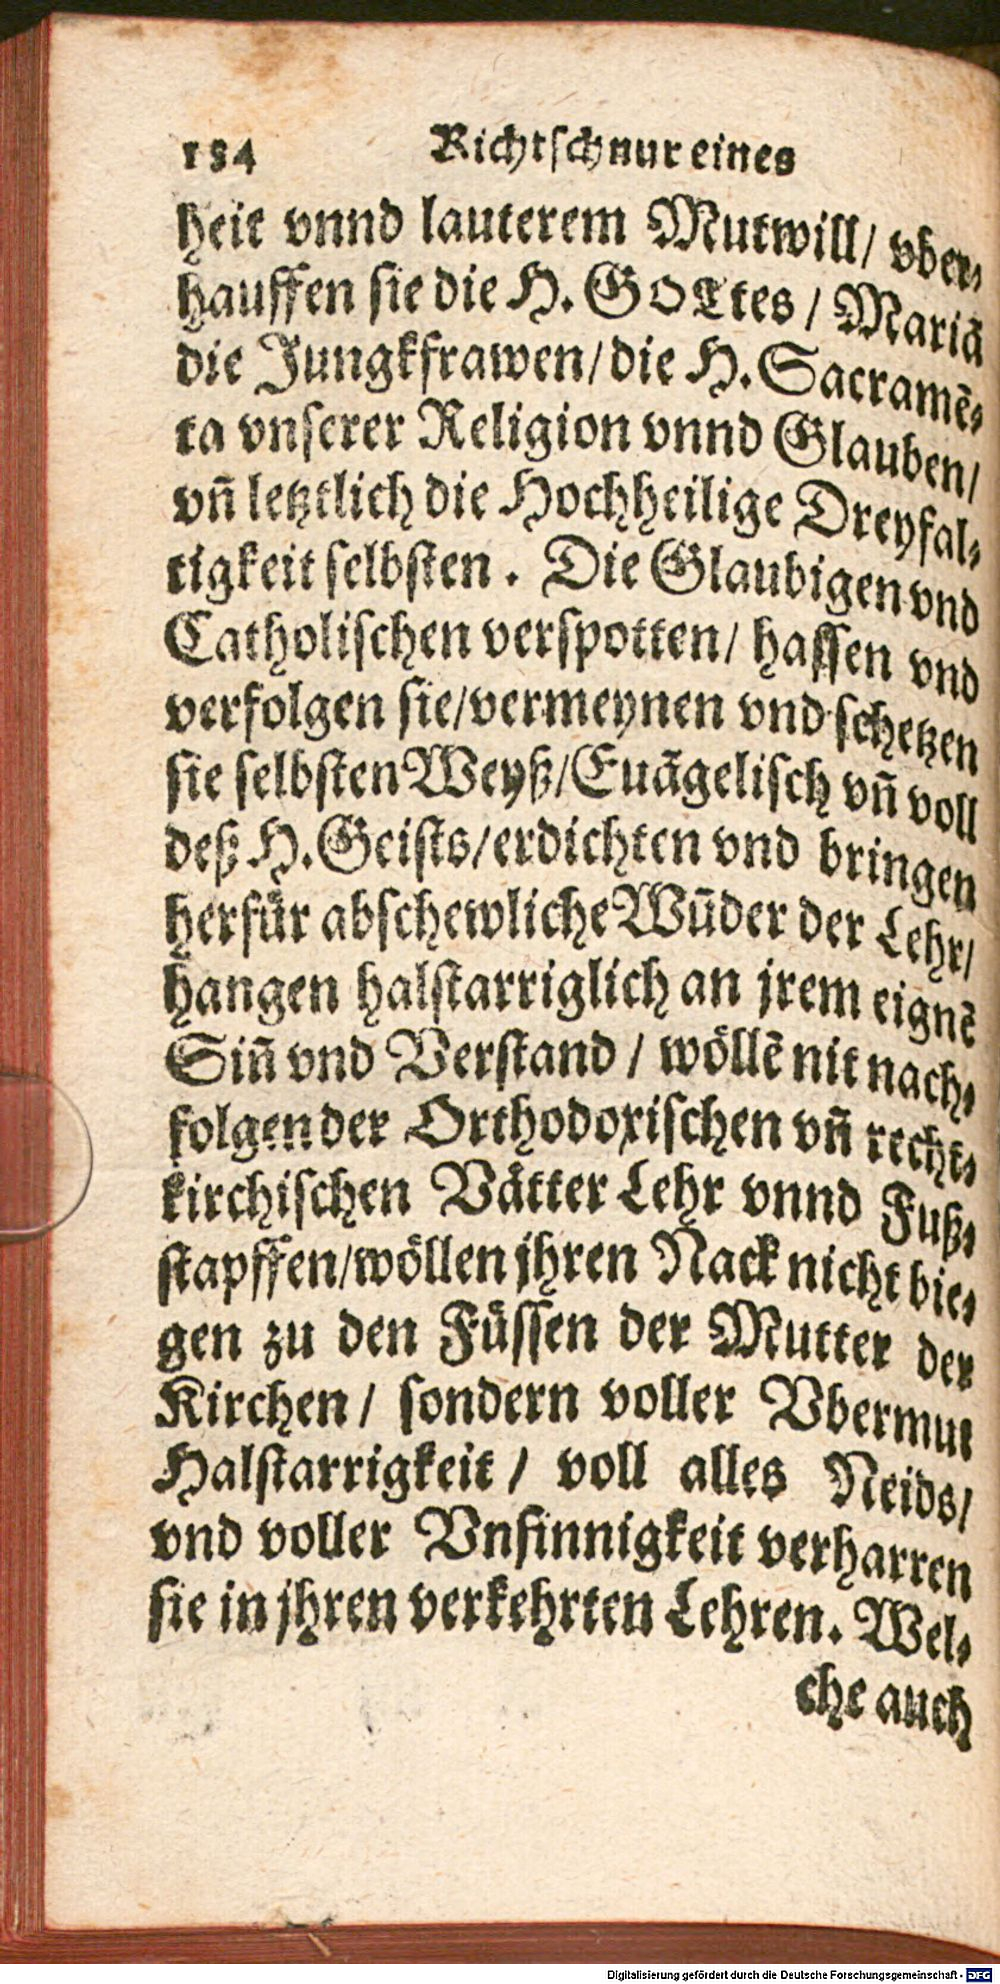 184 Richtschnur eines
heit vnnd lauterem Mutwill/ vber-
hauffen sie die H. GOTtes / Mariā
die Jungkfrawen/die H. Sacramē-
ta vnserer Religion vnnd Glauben/
vn̄ letztlich die Hochheilige Dreyfal-
tigkeit selbsten. Die Glaubigen vnd
Catholischen verspotten/ hassen vnd
verfolgen sie/vermeynen vnd schetzen
sie selbsten Weyß/Euāgelisch vn̄ voll
deß H. Geists/erdichten vnd bringen
herfür abschewliche Wūder der Lehr/
hangen halstarriglich an jrem eignē
Sin̄ vnd Verstand / wöllē nit nach-
folgen der Orthodoxischen vn̄ recht-
kirchischen Vätter Lehr vnnd Fuß-
stapffen/wöllen jhren Nack nicht bie-
gen zu den Füssen der Mutter der
Kirchen/ sondern voller Vbermut
Halstarrigkeit / voll alles Neids/
vnd voller Vnsinnigkeit verharren
sie in jhren verkehrten Lehren. Wel-
che auch
Digitalisierung gefördert durch die Deutsche Forschungsgemeinschaft - DFG